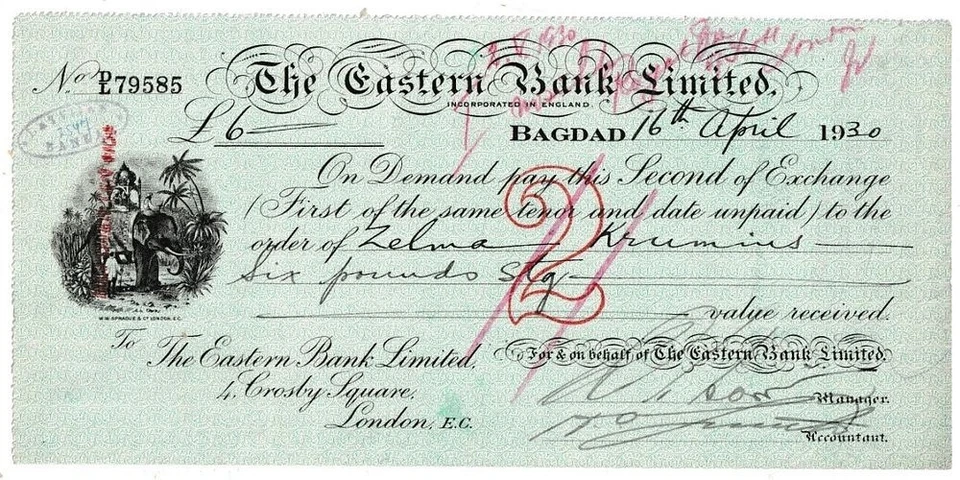 No D/L 79585 The Eastern Bank Limited.
INCORPORATED IN ENGLAND
£6 BAGDAD 16th April 1930
On Demand pay this Second of Exchange
(First of the same tenor and date unpaid) to the
order of Zelma Krumins
six pounds Stg
2
value received.
W.W. SPRAGUE & CO LONDON, E.C.
To The Eastern Bank Limited,
4, Crosby Square,
London, E.C.
For & on behalf of The Eastern Bank Limited.
Manager.
Accountant.